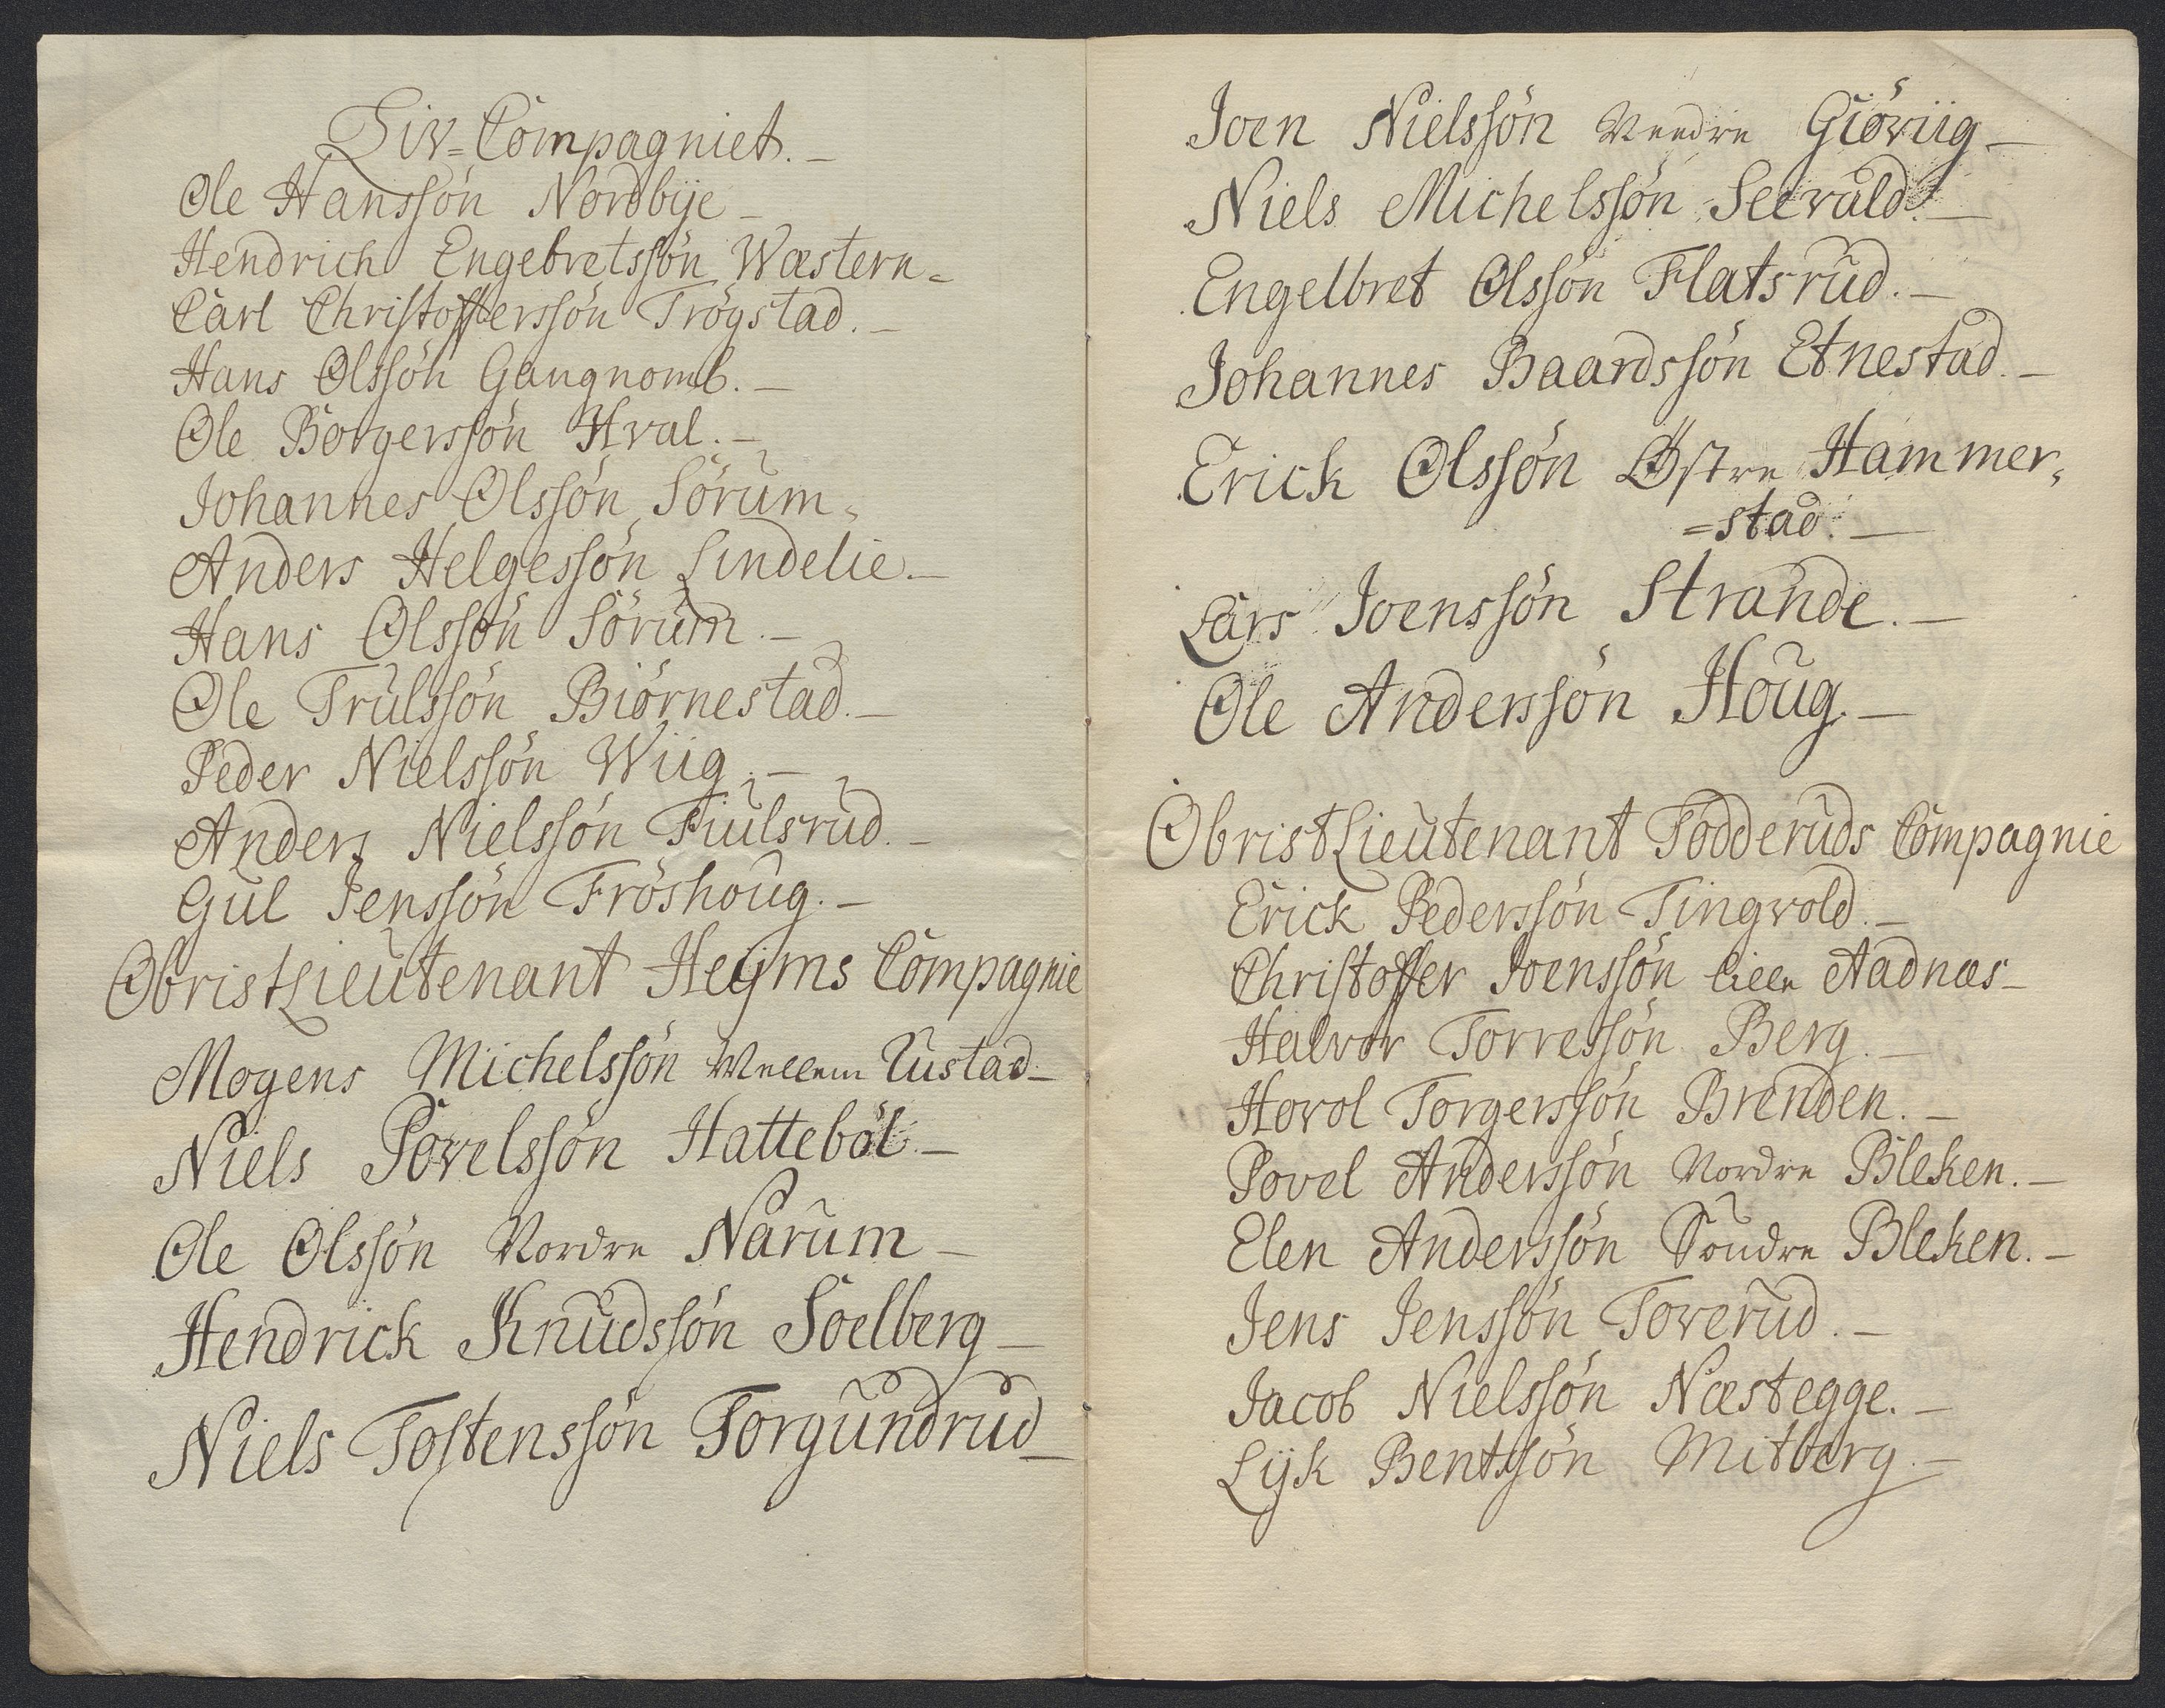 Liv-Compagniet.
Ole Hanssön Nordbÿe
Hendrich Engebretssön Wæstern
Carl Christofferssön Trögstad.
Hans Olssön Gangnomb.
Ole Borgerssön Hval.
Johannes Olssön Sörum
Anders Helgessön Lindelie.
Hans Olssön Sörum.
Ole Trulssön Biörnestad.
Peder Nielssön Wiig.
Anders Nielssön Fiulsrud.
Gul Jenssön Fröshoug.
ObristLieutenant Heÿms Compagnie
Mogens Michelssön Mellem Tustad
Niels Povelssön Hatteböl.
Ole Olssön Nordre Narum
Hendrick Knudssön Soelberg
Niels Tostenssön Torgundrud
Joen Nielssön Nendre Giöviig
Niels Michelssön Seevald.
Engelbret Olssön Flatsrud.
Johannes Baardssön Etnestad.
Erick Olssön Östre Hammer,
=stad.
Lars Joenssön Strande.
Ole Anderssön Houg.
ObristLieutenant Födderuds Compagnie
Erick Pederssön Tingvold.
Christoffer Joenssön Lille Aadnæs
Halvor Torressön Berg.
Hovol Torgerssön Brenden.
Povel Anderssön Nordre Bleken.
Elen Anderssön Söndre Bleken.
Jens Jenssön Toverud.
Jacob Nielssön Næstegge.
Lÿk Bentssön Mitberg.